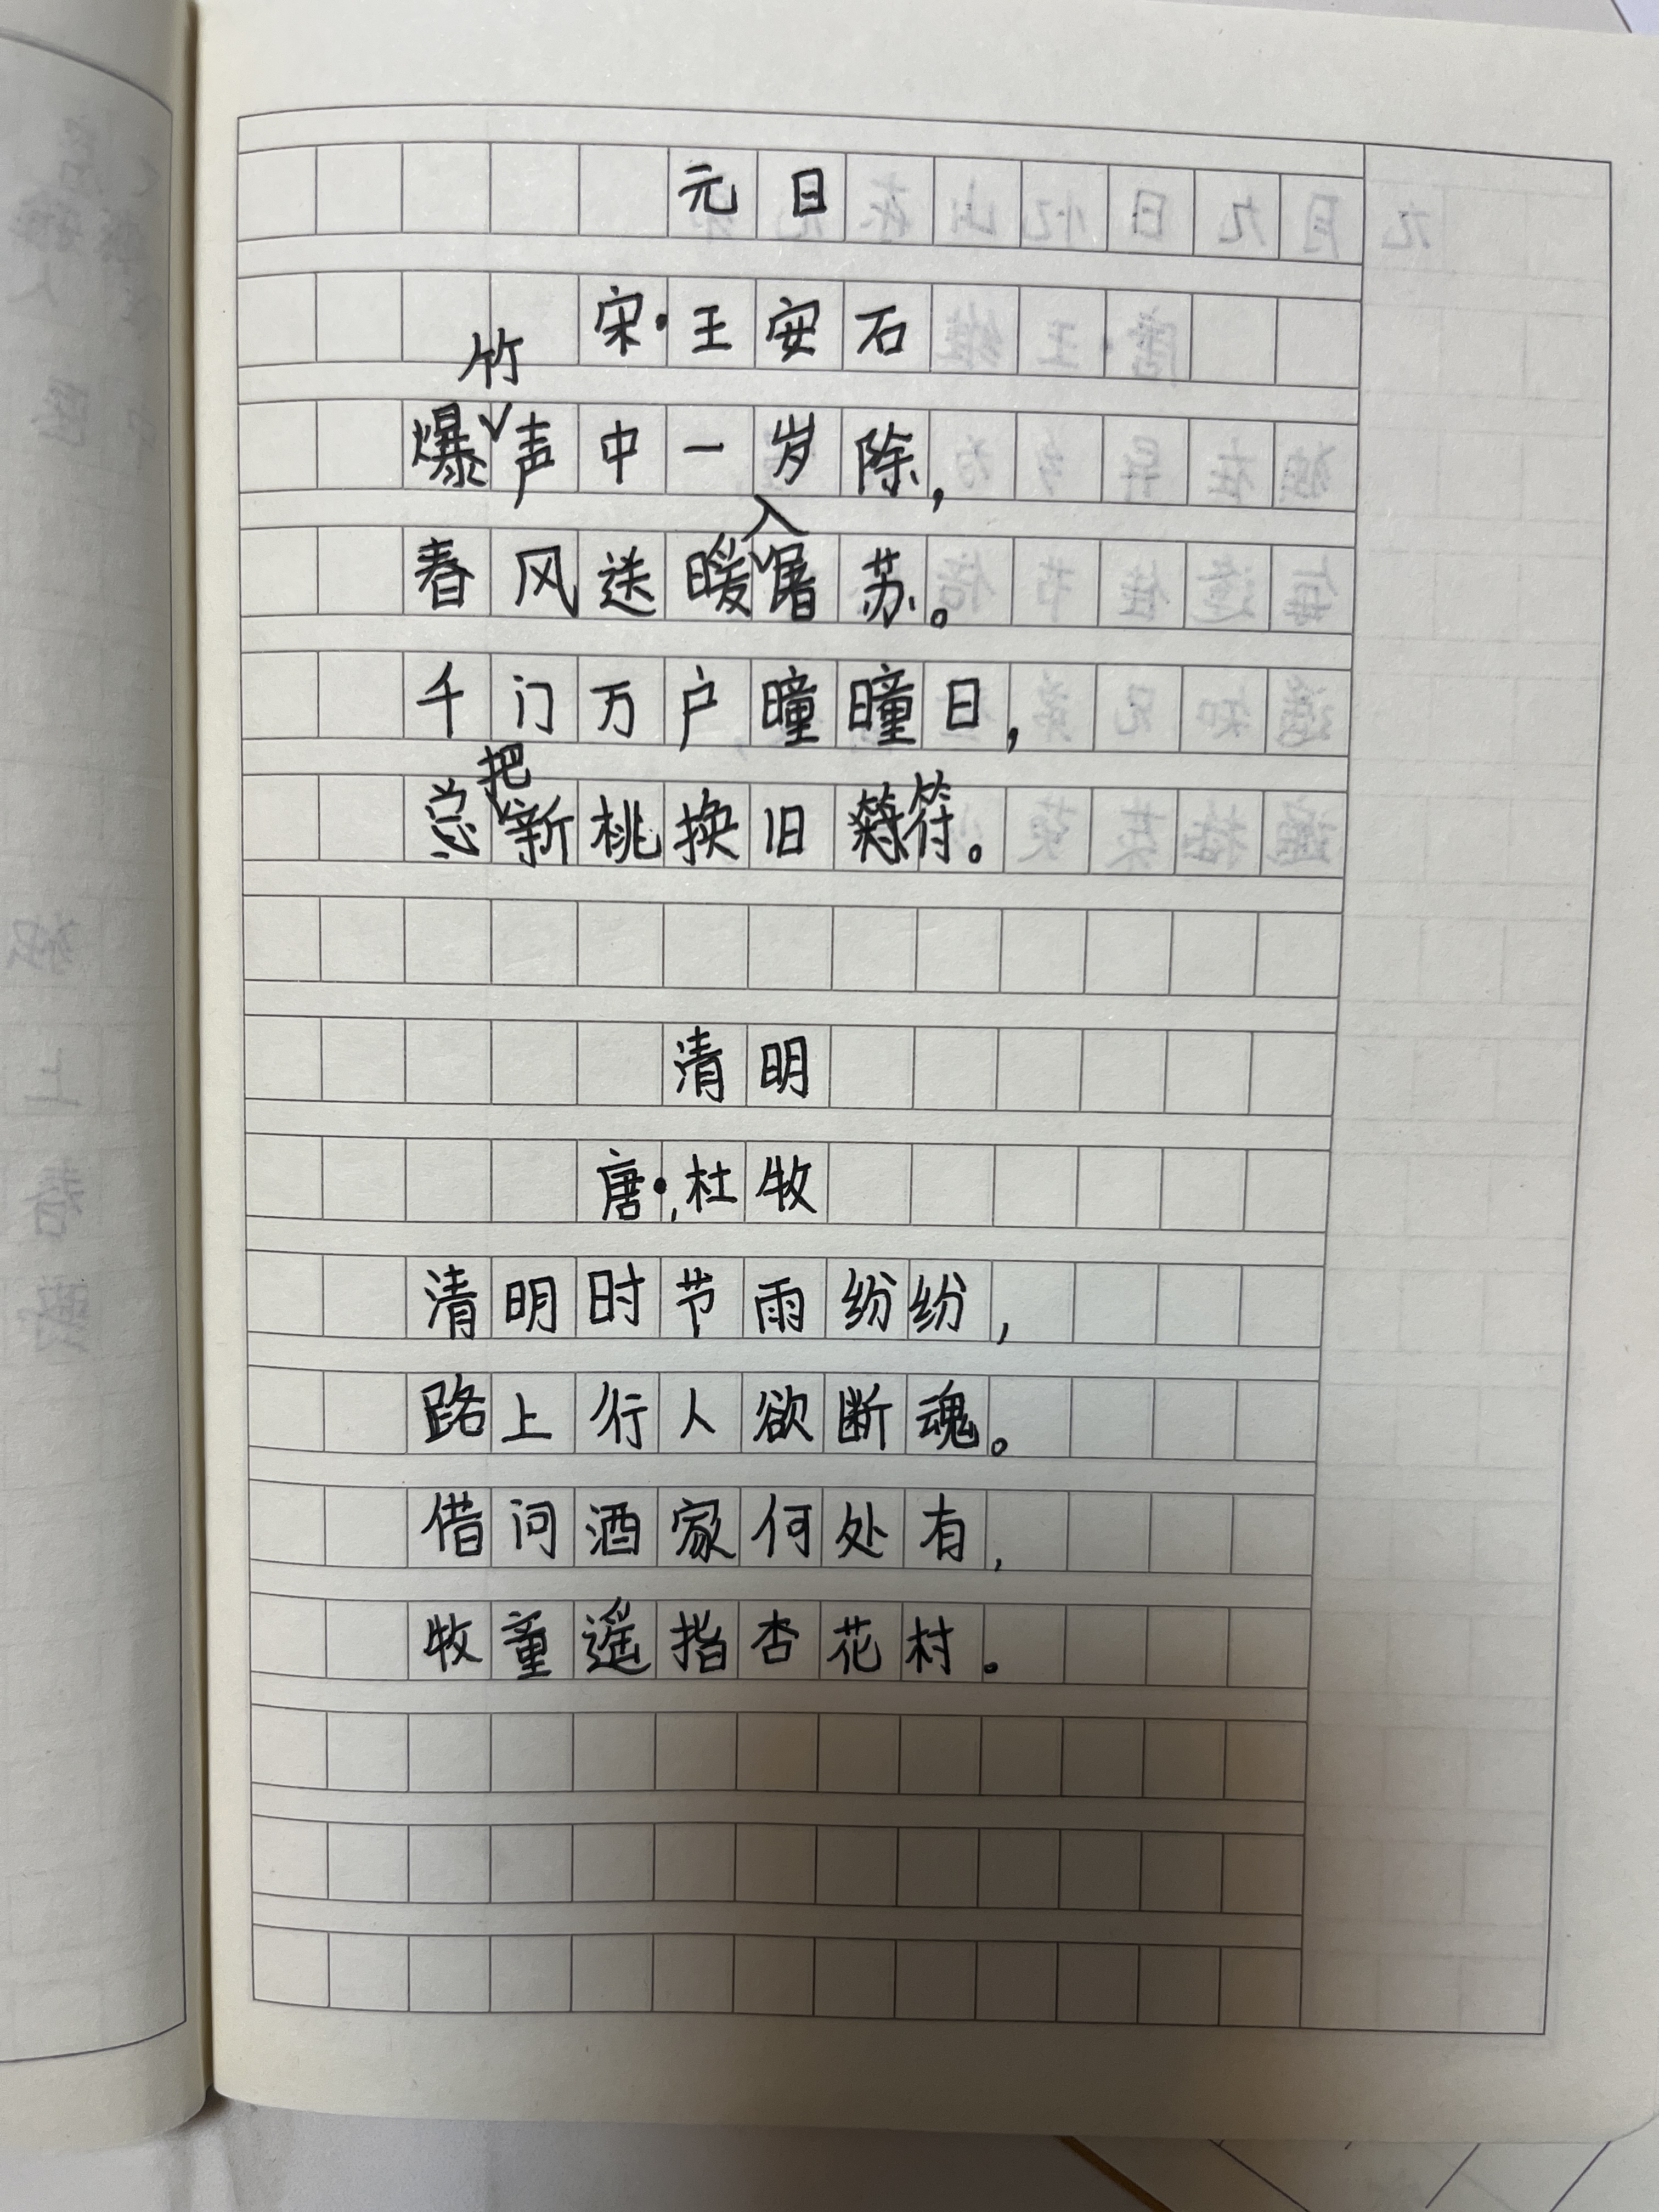 元日
宋·王安石
爆竹声中一岁除，
春风送暖入屠苏。
千门万户曈曈日，
总把新桃换旧符。
清明
唐·杜牧
清明时节雨纷纷，
路上行人欲断魂。
借问酒家何处有，
牧童遥指杏花村。